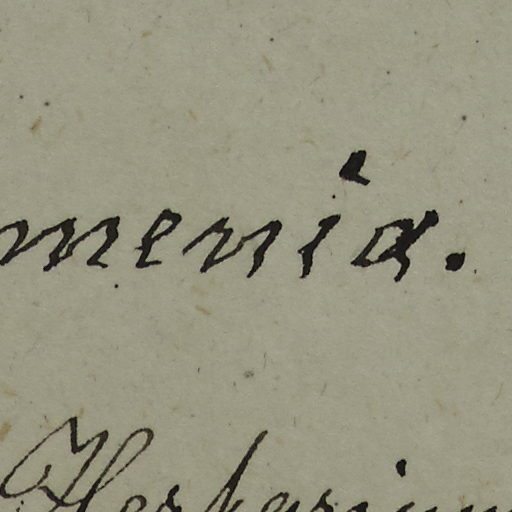 menia.
Herbarium